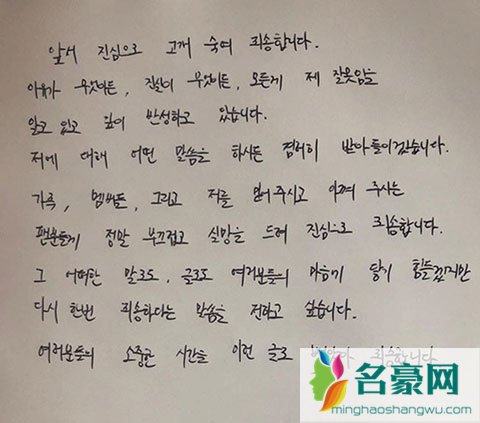 앞서 진심으로 고개 숙여 죄송합니다.
이유가 무엇이든, 진실이 무엇이든, 모든게 제 잘못임을
알고 있고 깊이 반성하고 있습니다.
저에 대해 어떤 말씀을 하시든 겸허히 받아들이겠습니다.
가족, 멤버들, 그리고 저를 믿어주시고 아껴 주시는
팬분들께 정말 부끄럽고 실망을 드려 진심으로 죄송합니다.
그 어떠한 말로도, 글로도 여러분들의 마음에 닿기 힘들겠지만
다시 한번 죄송하다는 말씀을 전하고 싶습니다.
여러분들의 소중한 시간을 이런 글로 죄송합니다
名豪网
minghaoshangwu.com